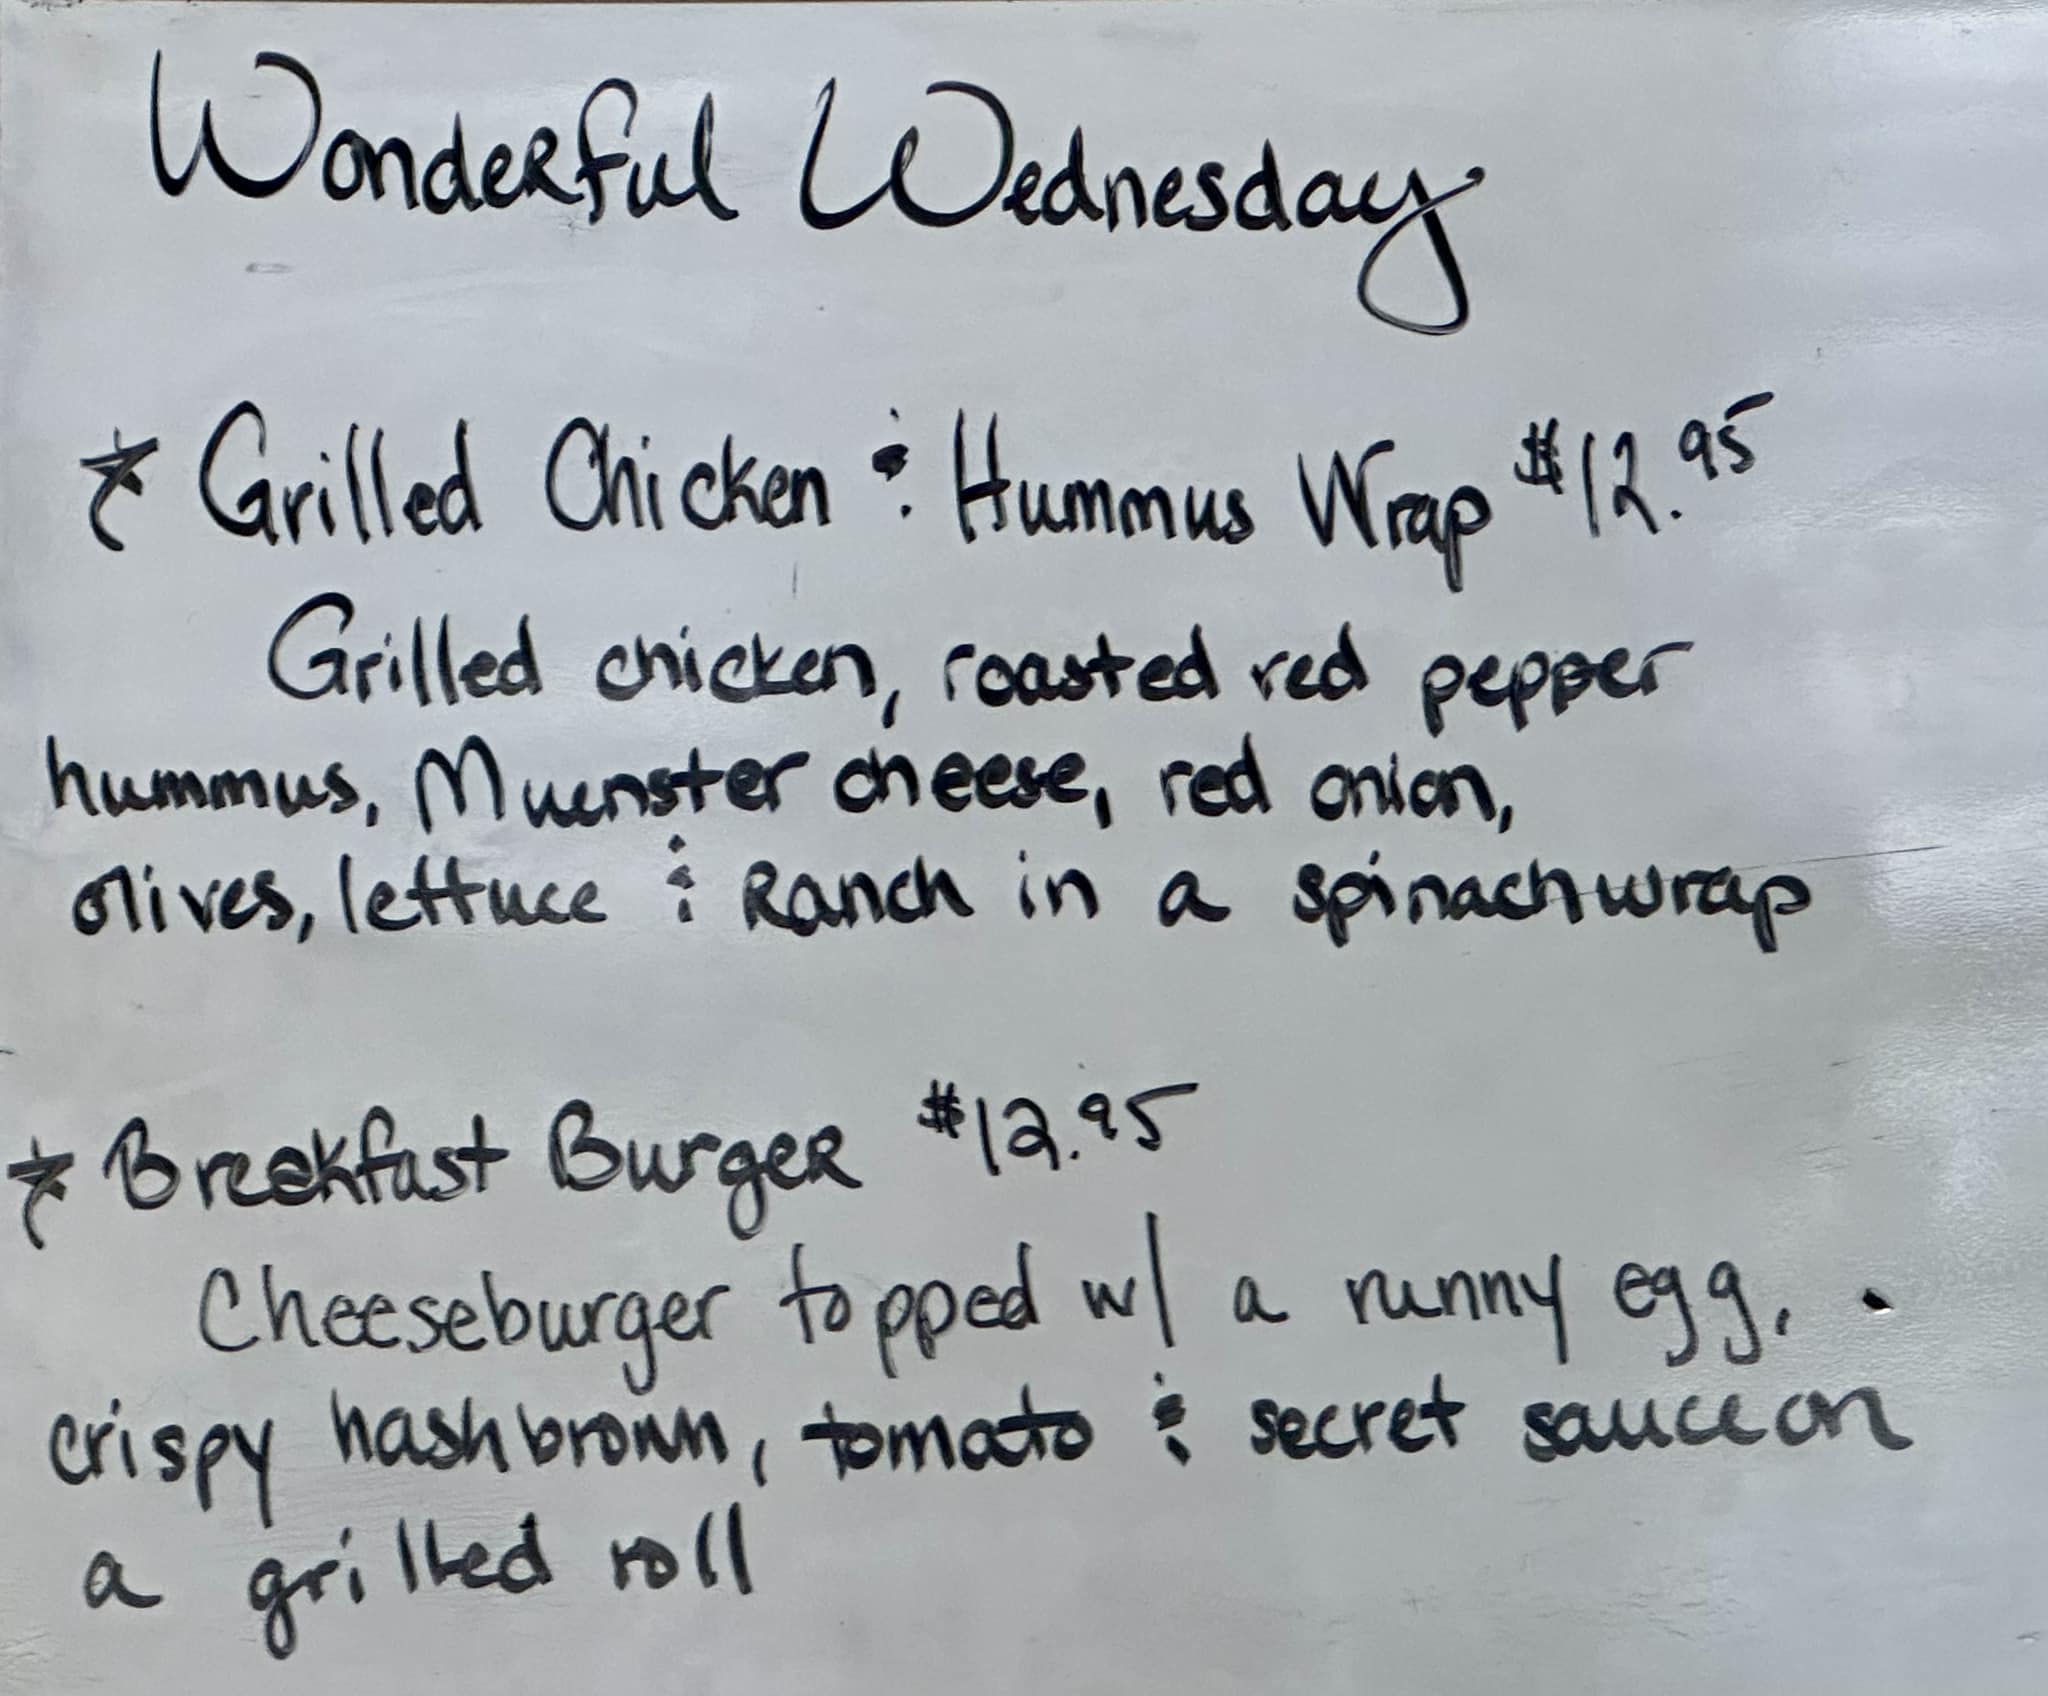 Wonderful Wednesday
* Grilled Chicken & Hummus Wrap $12.95
Grilled chicken, roasted red pepper
hummus, Muenster cheese, red onion,
olives, lettuce & Ranch in a spinach wrap
* Breakfast Burger $12.95
Cheeseburger topped w/ a runny egg,
crispy hashbrown, tomato & secret sauce on
a grilled roll